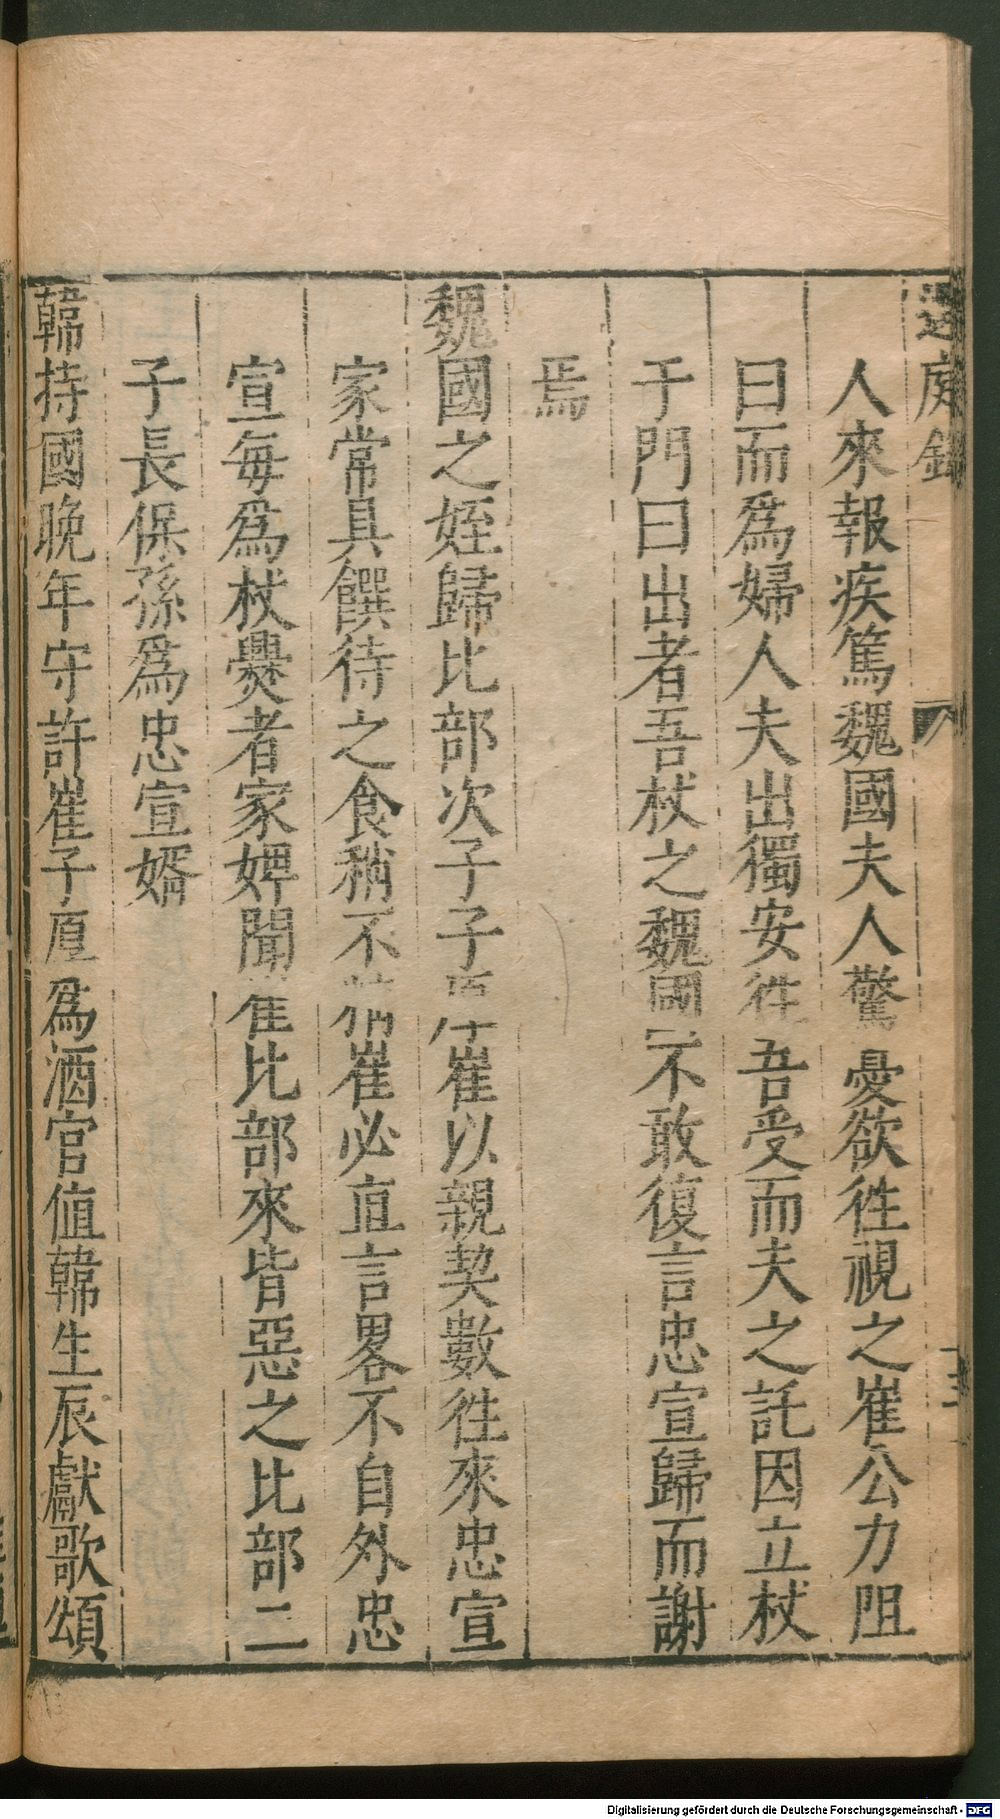 過庭錄
人來報疾篤魏國夫人驚憂欲徃視之崔公力阻
曰而為婦人夫出獨安徃吾受而夫之託因立杖
于門曰出者吾杖之魏國不敢復言忠宣歸而謝
焉
魏國之姪歸比部次子子厚崔以親契數徃來忠宣
家常具饌待之食稍不精崔必直言畧不自外忠
宣每為杖爨者家婢聞崔比部來皆惡之比部二
子長保孫為忠宣婿
韓持國晚年守許崔子厚為酒官值韓生辰獻歌頌
Digitalisierung gefördert durch die Deutsche Forschungsgemeinschaft - DFG